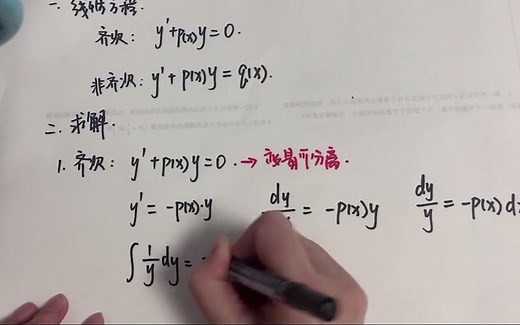 一. 线性方程.
齐次: y'+p(x)y=0.
非齐次: y'+p(x)y=q(x).
二. 求解.
1. 齐次: y'+p(x)y=0. → 变量可分离.
y'=-p(x)·y dy = -p(x)y dy/y = -p(x)d
∫ 1/y dy =